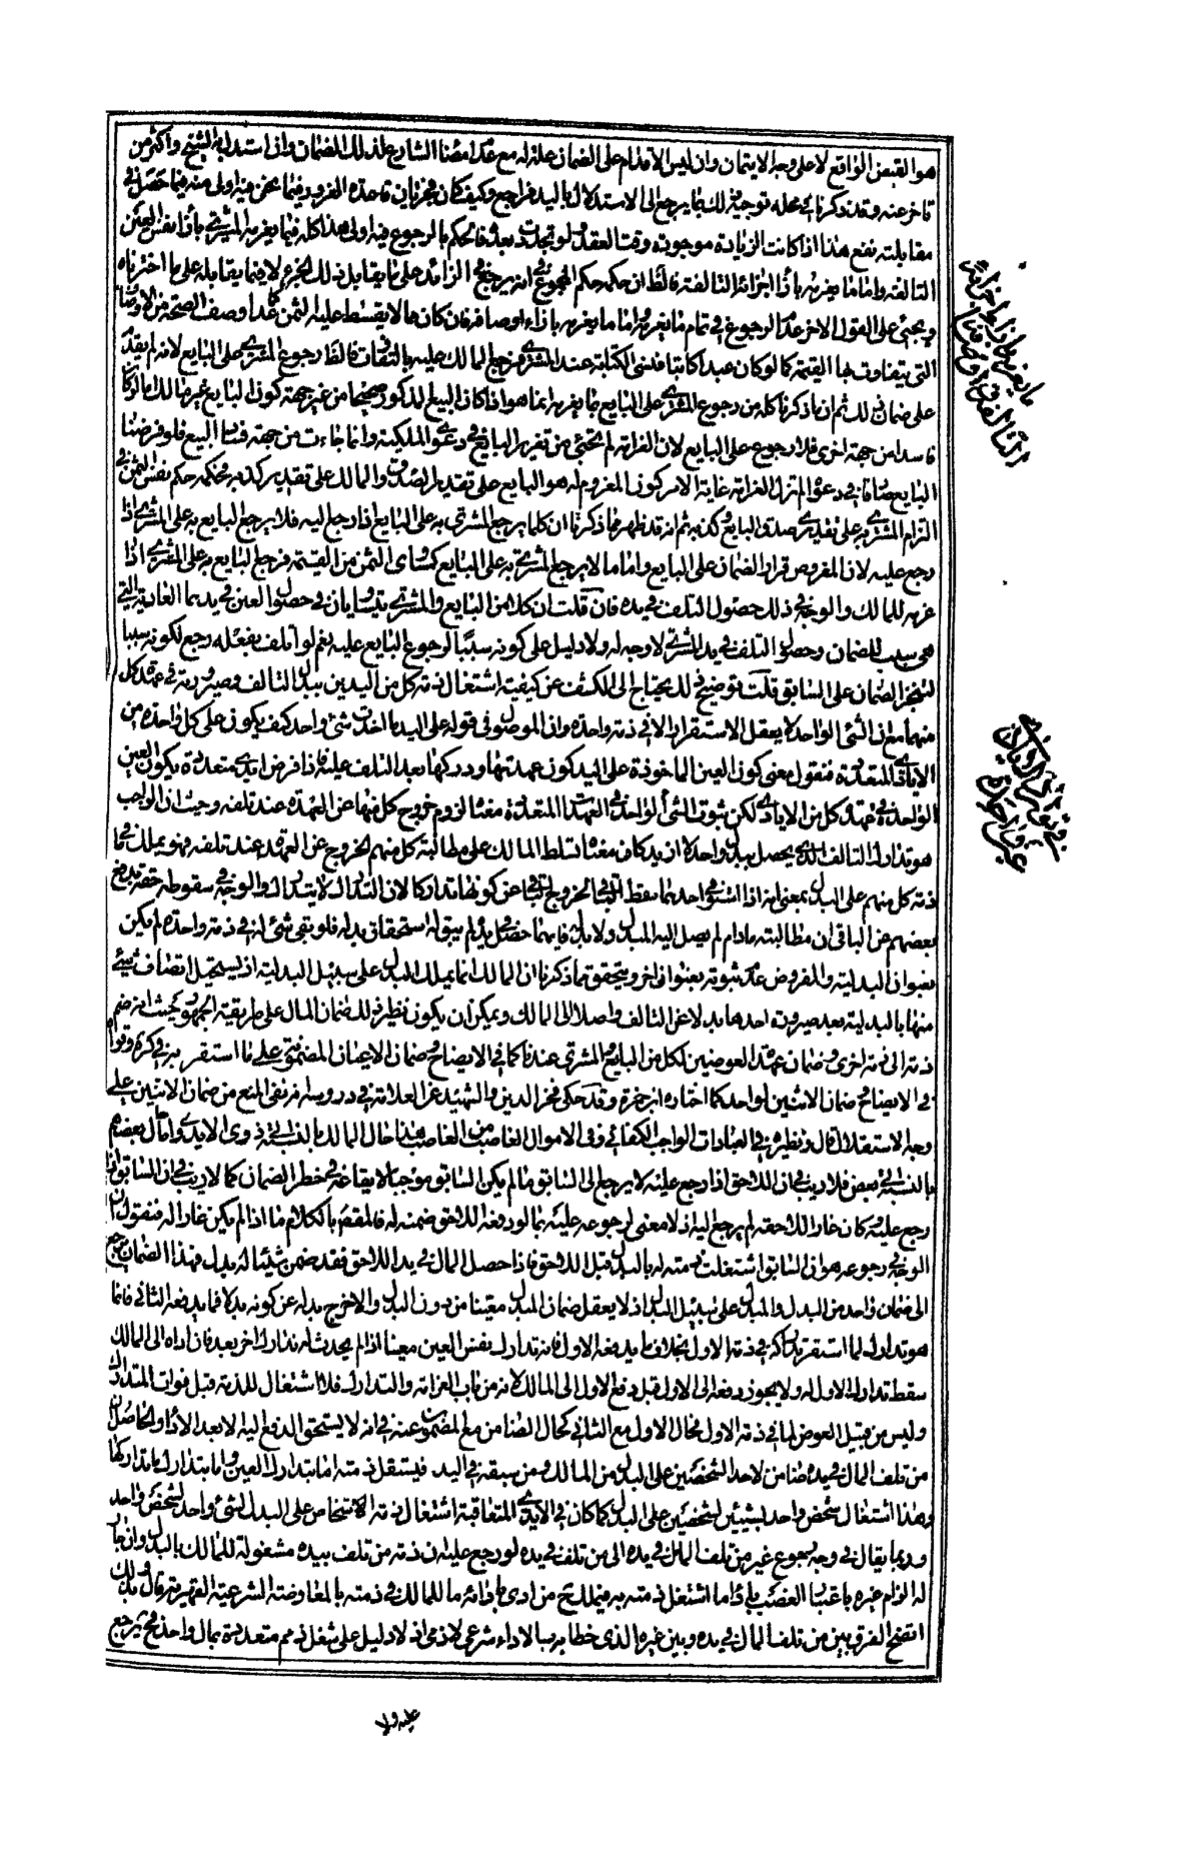 هو القبض الواقع لا على وجه الايتمان وان ليس الاقدام على الضمان علة له مع عدم امضاء الشارع لذلك الضمان وان استدل به الشيخ واكثر من
تاخر عنه وقد ذكرنا في محله توجيه ذلك بما يرجع الى الاستدلال باليد فراجع وكيف كان فجريان قاعدة الغرور فيما نحن فيه اولى منه فيما حصل في
مقابلته نفع هذا اذا كانت الزيادة موجودة وقت العقد ولو تجددت بعده فالحكم بالرجوع فيه اولى هذا كله فيما يغرمه المشترى بازاء نفس العين
التالفة واما ما يغرمه بازاء اجزائه التالفة فالظ ان حكمه حكم المجموع في انه يرجع في الزائد على ما يقابل ذلك الجزء لا فيما يقابله على ما اخترناه
ويجئ على القول الاخر عدم الرجوع في تمام ما يغرمه واما ما يغرمه بازاء اوصافه فان كان مما لا يقسط عليه الثمن كما عدا وصف الصحة من الاوصاف
التى يتفاوت بها القيمة كما لو كان عبدا كاتبا فنسى الكتابة عند المشترى فرجع المالك عليه بالتفاوت فالظ رجوع المشترى على البايع لانه لم يقدم
على ضمان ذلك ثم ان ما ذكرنا كله من رجوع المشترى على البايع بما يغرمه انما هو اذا كان البيع المذكور صحيحا من غير جهة كون البايع غير مالك اما لو كان
فاسدا من جهة اخرى فلا رجوع على البايع لان الغرامة لم تجئ من تغرير البايع في دعوى الملكية وانما جاءت من جهة فساد البيع فلو فرضنا
البايع صادقا في دعواه لم تزل الغرامة غاية الامر كون المغروم له هو البايع على تقدير الصدق والمالك على تقدير كذبه فحكمه حكم نفس الثمن في
التزام المشترى به على تقديرى صدق البايع وكذبه ثم انه قد ظهر مما ذكرنا ان كلما يرجع المشترى به على البايع اذا رجع اليه فلا يرجع البايع به على المشترى اذا
رجع عليه لان المفروض قرار الضمان على البايع واما ما لا يرجع المشترى به على البايع كمساوى الثمن من القيمة فيرجع البايع به على المشترى اذا
غرمه للمالك والوجه في ذلك حصول التلف في يده فان قلت ان كلا من البايع والمشترى يتساويان في حصول العين في يدهما العادية التى
هى سبب للضمان وحصول التلف في يد المشترى لا وجه له ولا دليل على كونه سببا لرجوع البايع عليه نعم لو اتلف بفعله رجع لكونه سببا
لتنجز الضمان على السابق قلت توضيح ذلك يحتاج الى الكشف عن كيفية اشتغال ذمة كل من اليدين ببدل التالف وصيرورته في عهدة كل
منهما مع ان الشئ الواحد لا يعقل الاستقرار الا في ذمة واحدة وان الموصول في قوله على اليد ما اخذت شئ واحد كيف يكون على كل واحدة من
الايادى المتعددة فنقول معنى كون العين الماخوذة على اليد كون عهدتها ودركها بعد التلف عليه فاذا فرض ايدى متعددة يكون العين
الواحدة في عهدة كل من الايادى لكن ثبوت الشئ الواحد في العهدات المتعددة معناه لزوم خروج كل منها عن العهدة عند تلفه وحيث ان الواجب
هو تدارك التالف الذى يحصل ببدل واحد لا ازيد كان معناه تسلط المالك على مطالبة كل منهم للخروج عن العهدة عند تلفه فهو يملك ما في
ذمة كل منهم على البدل بمعنى انه اذا استوفى احدهما سقط الباقى لخروج الباقى عن كونها تداركا لان المتدارك لا يتدارك والوجه في سقوط حقه بدفع
بعضهم عن الباقى ان مطالبته ما دام لم يصل اليه المبدل ولا بدله فايهما حصل في يده لم يبق له استحقاق بدله فلو بقى شئ له في ذمة واحدة لم يكن
بعنوان البدلية والمفروض عدم ثبوته بعنوان اخر ويتحقق مما ذكرنا ان المالك انما يملك البدل على سبيل البدلية اذ يستحيل اتصاف شئ
منها بالبدلية بعد صيرورة احدها بدلا عن التالف واصلا الى المالك ويمكن ان يكون نظير ذلك ضمان المال على طريقة الجمهور حيث انه ضم
ذمة الى ذمة اخرى وضمان عهدة العوضين لكل من البايع والمشترى عندنا كما في الايضاح وضمان الاعيان المضمونة على ما استقر به في كرة وقواه
في الايضاح وضمان الاثنين لواحد كما اختاره ابن حمزة وقد حكى فخر الدين والشهيد عن العلامة في درسه انه نفى المنع من ضمان الاثنين على
وجه الاستقلال قال ونظيره في العبادات الواجب الكفائى وفى الاموال الغاصب من الغاصب هذا حال المالك بالنسبة الى ذوى الايدى واما حال بعضهم
بالنسبة الى بعض فلا ريب في ان اللاحق اذا رجع عليه لا يرجع الى السابق ما لم يكن السابق موجبا لايقاعه في خطر الضمان كما لا ريب في ان السابق اذا
رجع عليه وكان غارا للاحقه لم يرجع اليه اذ لا معنى لرجوعه عليه بما لو دفعه اللاحق ضمنه له فالمقصود بالكلام ما اذا لم يكن غارا له فنقول ان
الوجه في رجوعه هو ان السابق اشتغلت ذمته له بالبدل قبل اللاحق فاذا حصل المال في يد اللاحق فقد ضمن شيئا له بدل فهذا الضمان يرجع
الى ضمان واحد من البدل والمبدل على سبيل البدل اذ لا يعقل ضمان المبدل معينا من دون البدل والا خرج بدله عن كونه بدلا فما يدفعه الثانى فانما
هو تدارك لما استقر تداركه في ذمة الاول بخلاف ما يدفعه الاول فانه تدارك نفس العين معينا اذ لم يحدث له تدارك اخر بعد فان اداه الى المالك
سقط تدارك الاول له ولا يجوز دفعه الى الاول قبل دفع الاول الى المالك لانه من باب الغرامة والتدارك فلا اشتغال للذمة قبل فوات المتدارك
وليس من قبيل العوض لما في ذمة الاول فحال الاول مع الثانى كحال الضامن مع المضمون عنه في انه لا يستحق الدفع اليه الا بعد الاداء والحاصل ان
من تلف المال في يده ضامن لاحد الشخصين على البدل من المالك ومن سبقه في اليد فيشتغل ذمته اما بتدارك العين واما بتدارك ما تداركها
وهذا اشتغال شخص واحد بشيئين لشخصين على البدل كما كان في الايدى المتعاقبة اشتغال ذمة الاشخاص على البدل لشئ واحد لشخص واحد
وربما يقال في وجه رجوع غير من تلف المال في يده الى من تلف في يده لو رجع عليه ان ذمة من تلف بيده مشغولة للمالك بالبدل وان جاز
له الزام غيره باعتبار الغصب باداء ما اشتغل ذمته به فيملك ح من ادى بادائه ما للمالك في ذمته بالمعاوضة الشرعية القهرية قال وبذلك
اتضح الفرق بين من تلف المال في يده وبين غيره الذى خطابه بالاداء شرعى لا ذمى اذ لا دليل على شغل ذمم متعددة بمال واحد فح يرجع
عليه ولا